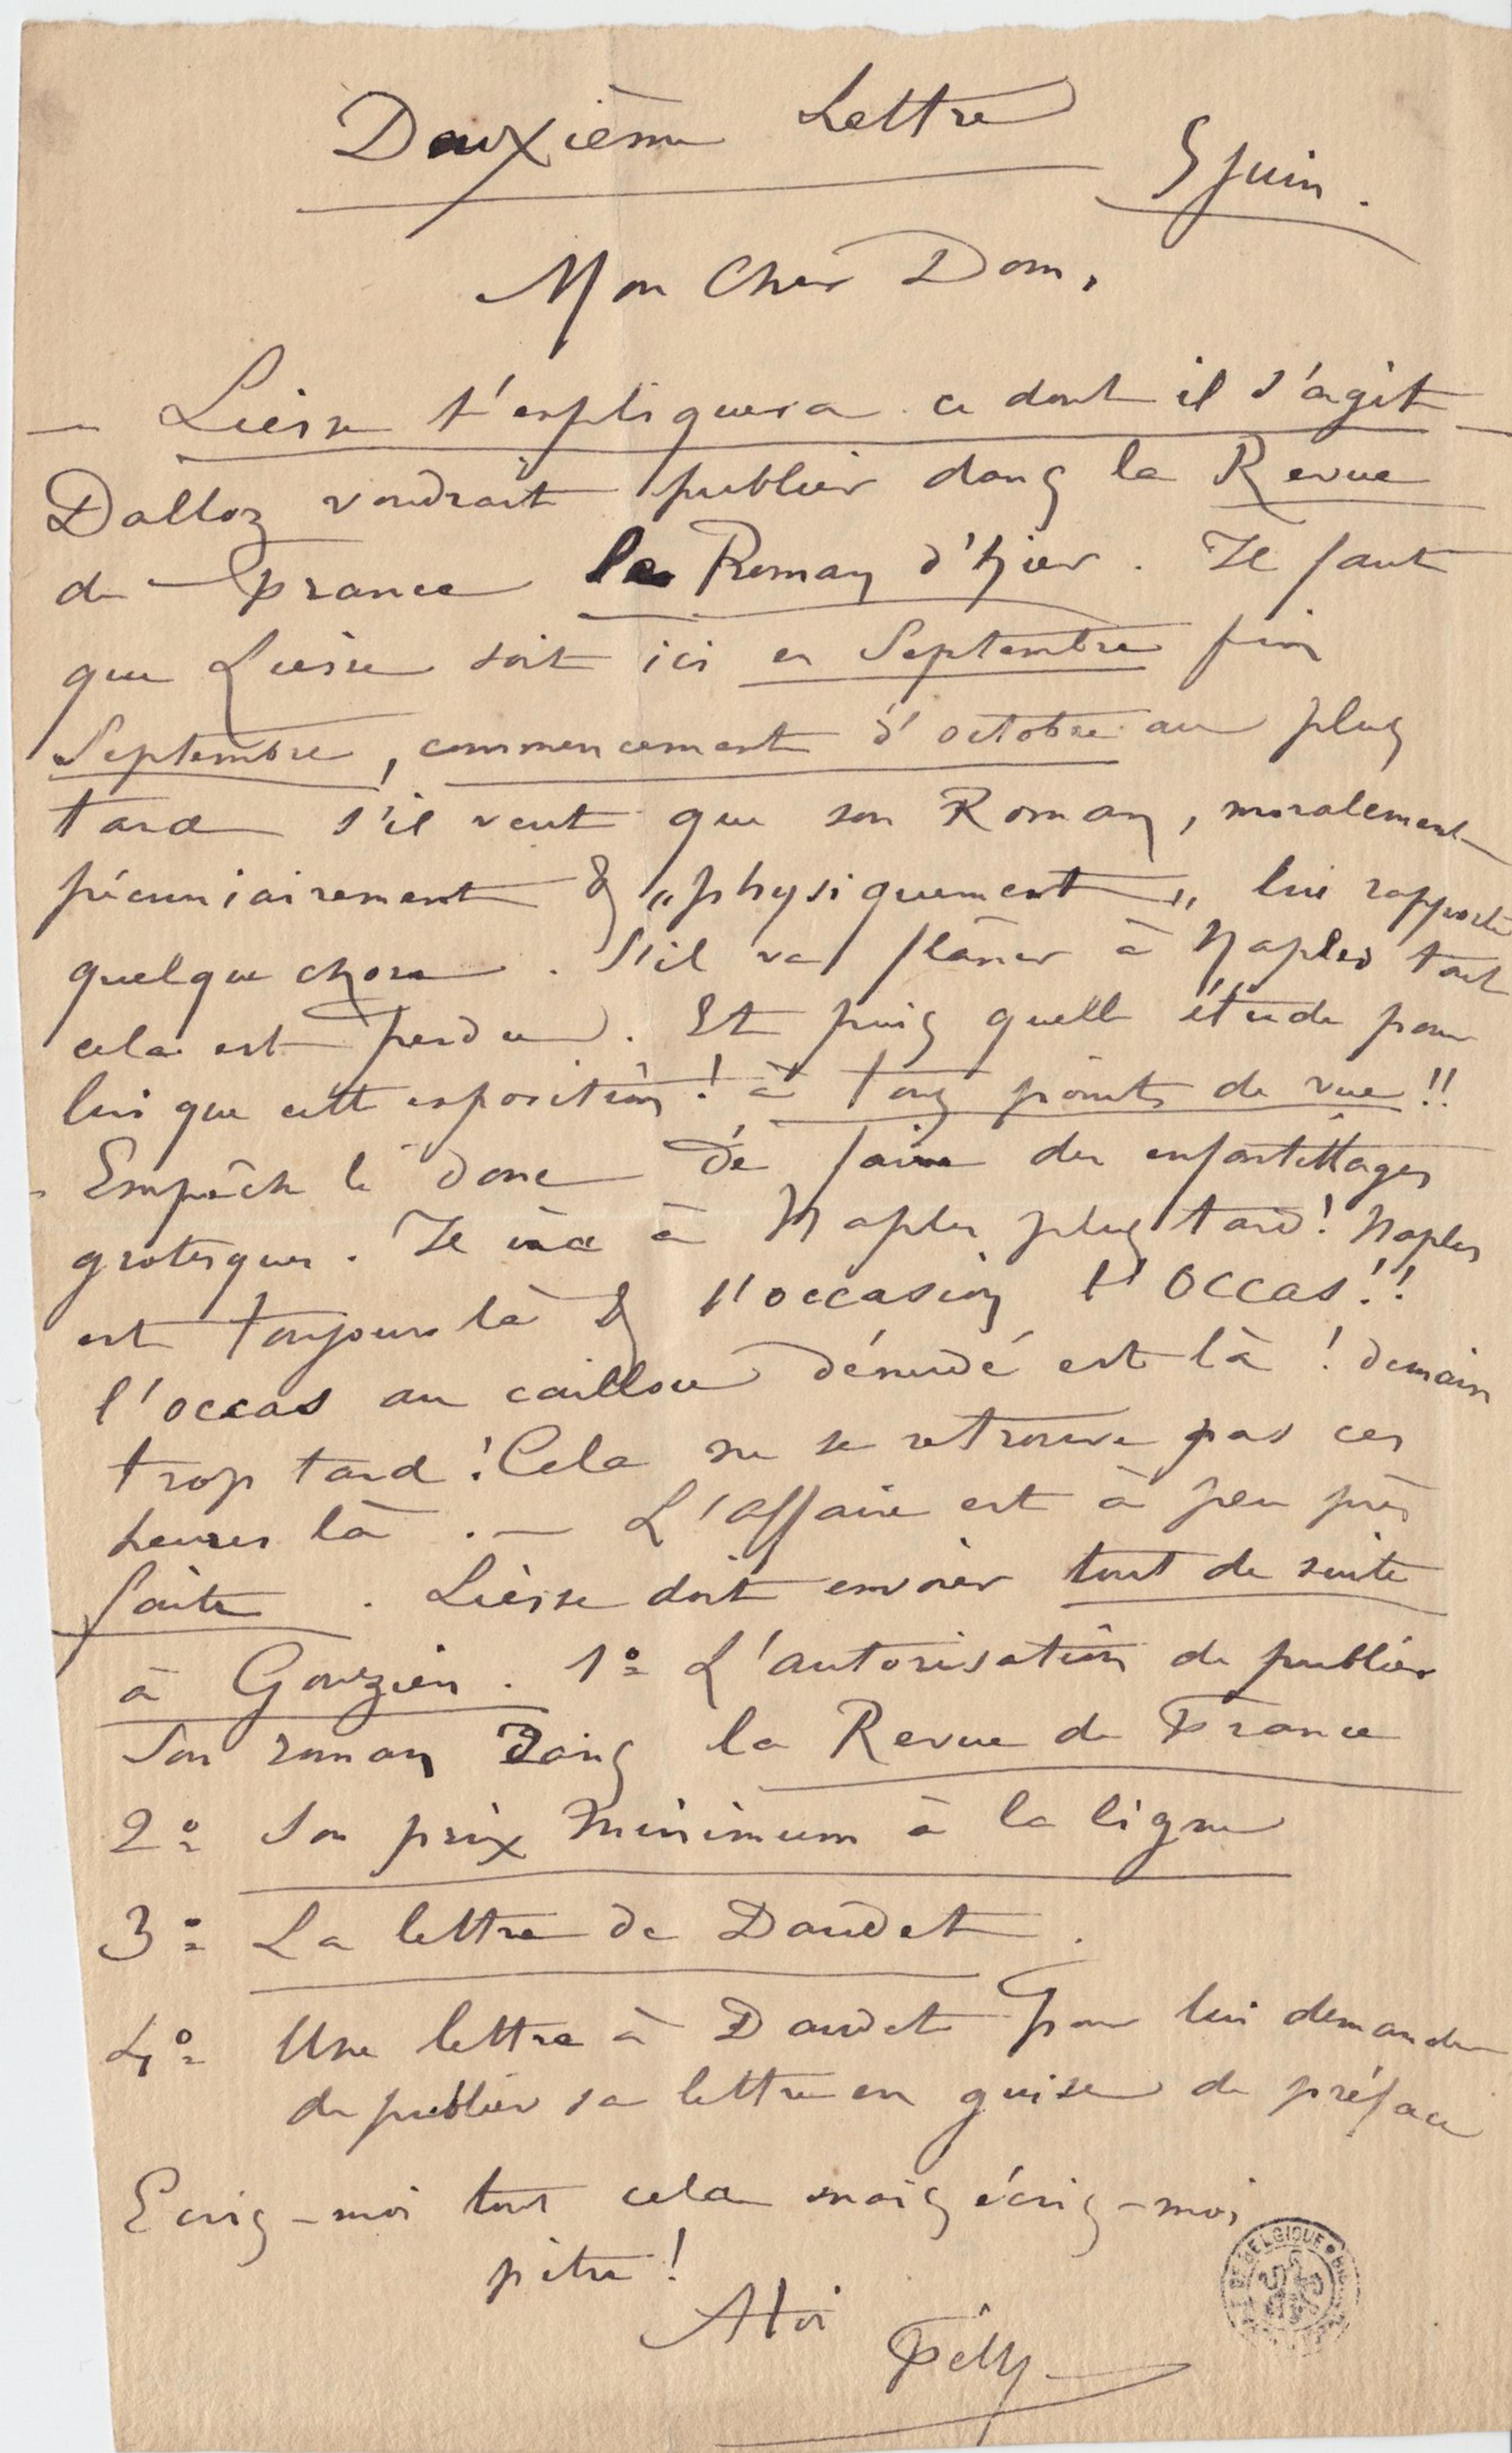 Deuxième Lettre
5 Juin.
Mon Cher Dom,
— Liesse t'expliquera ce dont il s'agit —
Dalloz voudrait publier dans la Revue
de France le Roman d'hier. Il faut
que Liesse soit ici en Septembre fin
Septembre, commencement d'octobre au plus
tard s'il veut que son Roman, moralement
pécuniairement & "physiquement" lui rapporte
quelque chose. S'il va flâner à Naples tout
cela est perdu. Et puis quelle étude pour
lui que cette exposition! à tous points de vue!!
- Empêche le donc de faire des enfantillages
grotesques. Il ira à Naples plus tard! Naples
est toujours là & l'occasion l'occas!!
l'occas au caillou dénudé est là! demain
trop tard! Cela ne se retrouve pas ces
heures là. — L'affaire est à peu près
faite. Liesse doit envoyer tout de suite
à Gouzien. 1º L'autorisation de publier
son roman dans la Revue de France
2º Son prix minimum à la ligne
3º La lettre de Daudet.
4º Une lettre à Daudet pour lui demander
de publier sa lettre en guise de préface
Ecris-moi tout cela mais écris-moi
pitre!
A toi
Fély